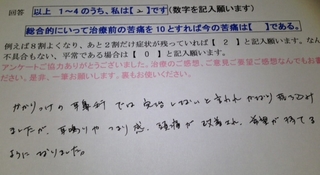 回答 以上 1~4のうち、私は【2】です(数字を記入願います)
総合的にいって治療前の苦痛を10とすれば今の苦痛は【 】である。
例えば8割よくなり、あと2割だけ症状が残っていれば【 2 】と記入願います。なん
不具合もない、平常である場合は【 0 】と記入願います。
アンケートご協力ありがとうございました。治療のご感想、ご意見ご要望ご感想なんでもお書
ださい。是非、一筆お願いします。裏もお使いください。
かかりつけの耳鼻科では完治しないと言われ かなり落ち込み
ましたが、耳鳴りやつまり感、頭痛が改善され、希望が持てる
ようになりました。